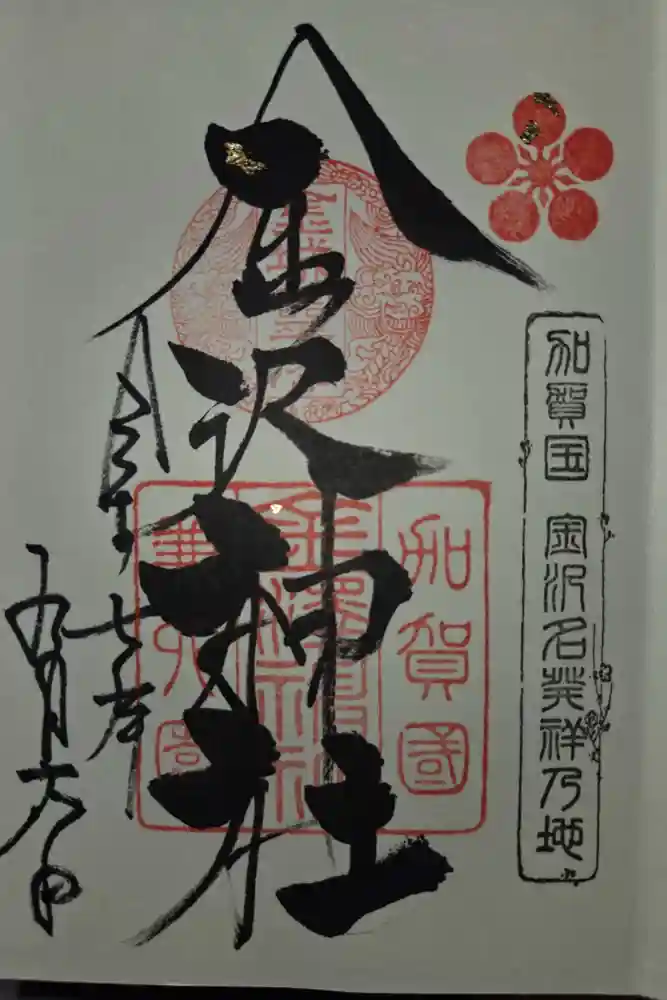 加賀国 金沢名発祥乃地
金沢神社
加賀國
金澤神社
兼六園
令和七年
九月六日